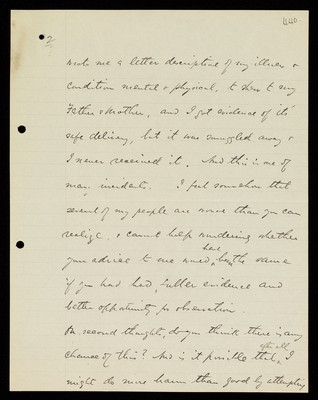 440.
2
wrote me a letter descriptive of my illness &
condition mental & physical, to show to my
Father & Mother, and I got evidence of its
safe delivery, but it was smuggled away &
I never received it. And this is one of
many incidents. I feel somehow that
several of my people are worse than you can
realize. & cannot help wondering whether
your advice to me would have been the same
if you had had fuller evidence and
better opportunity for observation.
On second thoughts, do you think there is any
chance of this? And is it possible that, after all, I
might do more harm than good by attempting